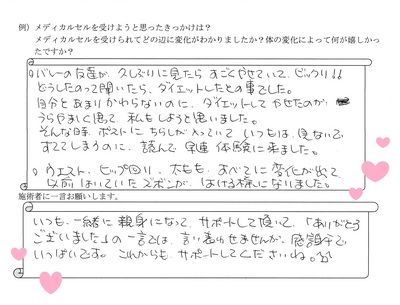 例）メディカルセルを受けようと思ったきっかけは？
メディカルセルを受けられてどの辺に変化がわかりましたか？体の変化によって何が嬉しかったですか？
○バレーの友達が、久しぶりに見たら すごくやせていて、ビックリ!!
どうしたのって聞いたら、ダイエットしたとの事でした。
自分とあまりかわらないのに、ダイエットして やせたのが
うらやましく思って 私もしようと思いました。
そんな時 ポストに ちらしが入っていて いつもは、見ないで
すててしまうのに、読んで 早速 体験に来ました。
○ウエスト、ヒップ回り、太もも、すべてに変化が出て
以前はいていた ズボンが、はける様になりました。
施術者に一言お願いします。
いつも、一緒に 親身になって、サポートして頂いて、「ありがとう
ございました」の一言では、言い表わせませんが、感謝で
いっぱいです。これからも サポートしてくださいね。